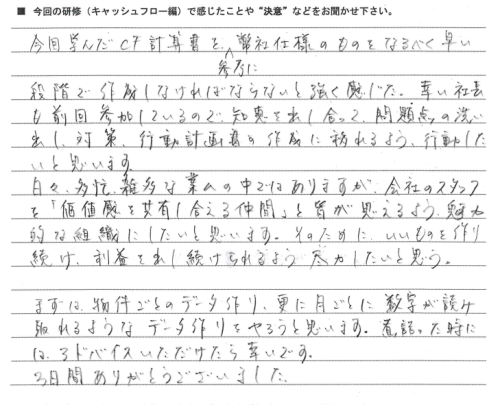 ■ 今回の研修（キャッシュフロー編）で感じたことや“決意”などをお聞かせ下さい。
今回学んだCF計算書を、弊社仕様のものをなるべく早い
参考に
段階で作成しなければならないと強く感じた。幸い社長
も前回参加しているので、知恵を出し合って、問題点の洗い
出し、対策、行動計画書の作成に移れるよう、行動した
いと思います。
日々、多忙、雑多な業ムの中ではありますが、会社のスタッフ
を「価値感を共有し合える仲間」と皆が思えるよう、魅力
的な組織にしたいと思います。そのために、いいものを作り
続け、利益を出し続けられるよう尽力したいと思う。
まずは、物件ごとのデータ作り、更に月ごとに数字が読み
取れるようなデータ作りをやろうと思います。詰った時に
は、アドバイスいただけたら幸いです。
3日間ありがとうございました。